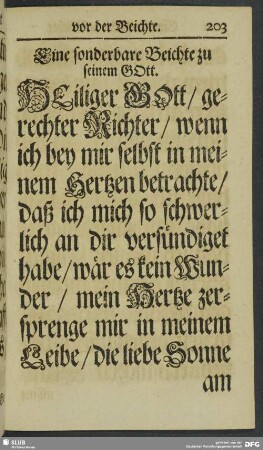 vor der Beichte. 203
Eine sonderbare Beichte zu
seinem GOtt.
HEiliger GOtt/ ge-
rechter Richter/ wenn
ich bey mir selbst in mei-
nem Hertzen betrachte/
daß ich mich so schwer-
lich an dir versündiget
habe/ wär es kein Wun-
der/ mein Hertze zer-
sprenge mir in meinem
Leibe/ die liebe Sonne
am
SLUB
DFG